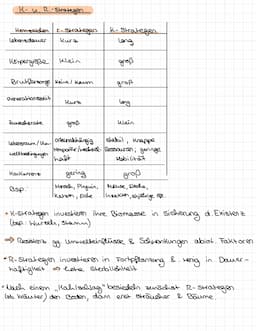 K- u. R-Strategen
Kennzeichen r-Strategen K-Strategen
Lebensdauer Kurz lang
Körpergröße Klein groß
Brutfürsorge Keine / Kaum groß
Generationszeit Kurz lang
groß Klein
Lebensraum / Um-
weltbedingungen
stabil, knappe
Ressourcen, geringe
Mobilität
Konkurrenz gering groß
Bsp.
• K-Strategen investieren ihre Biomasse in Sicherung d. Existenz
(bsp: Wurzeln, Stamm)
→ Resistenz gg Umwelteinflüsse & Schwankungen abiot. Faktoren
• R-Strategen investieren in Fortpflanzung & wenig in Dauer-
haftigkeit → hohe Sterblichkeit
• Nach einem "Kahlschlag" besiedeln zunächst R-Strategen
(zB Kräuter) den Boden, dann erst Sträucher & Bäume.